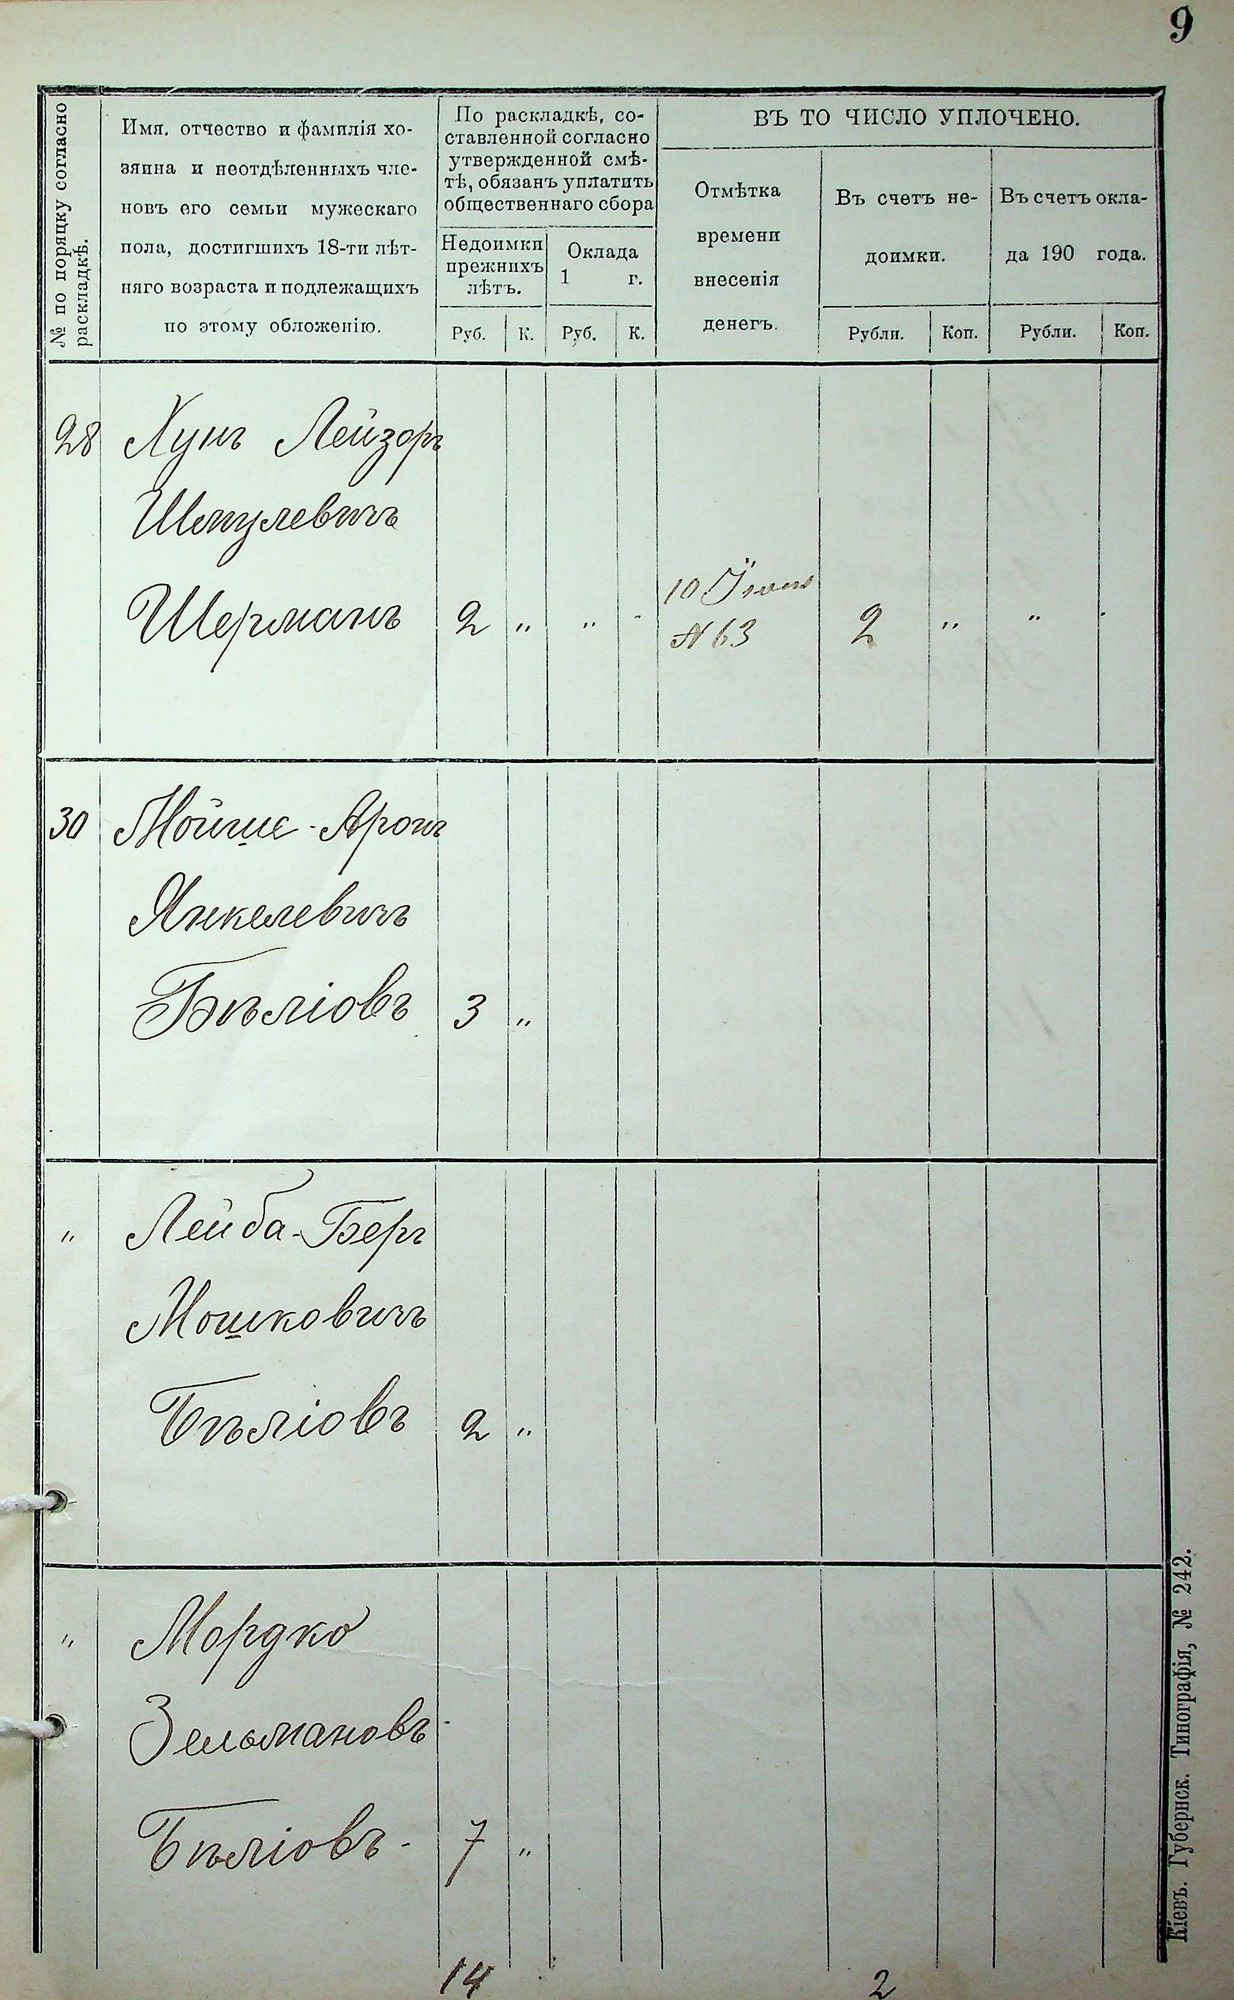 9
№ по порядку согласно
раскладкѣ.
Имя, отчество и фамилія хо-
зяина и неотдѣленныхъ чле-
новъ его семьи мужескаго
пола, достигшихъ 18-ти лѣт-
няго возраста и подлежащихъ
по этому обложенію.
По раскладкѣ, со-
ставленной согласно
утвержденной смѣ-
тѣ, обязанъ уплатить
общественнаго сбора
Недоимки
прежнихъ
лѣтъ.
Оклада
1 г.
Руб. К. Руб. К.
ВЪ ТО ЧИСЛО УПЛОЧЕНО.
Отмѣтка
времени
внесенія
денегъ.
Въ счетъ не-
доимки.
Въ счетъ окла-
да 190 года.
Рубли. Коп. Рубли. Коп.
28 Хунъ Лейзоръ
Шмулевичъ
10
Шерманъ 2 " " " №63 2 " " "
30 Мойше-Аронъ
Янкелевичъ
Бѣліовъ 3 "
" Лейба-Беръ
Мошковичъ
Бѣліовъ 2 "
" Мордко
Зельмановъ-
Бѣліовъ- 7 "
14 2
Кіевъ. Губернск. Типографія, № 242.